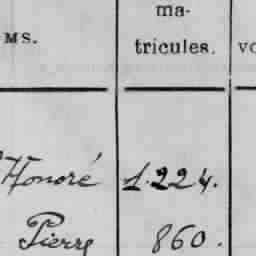 ma-
MS. tricules.
Honoré 1.224.
Pierre 860.